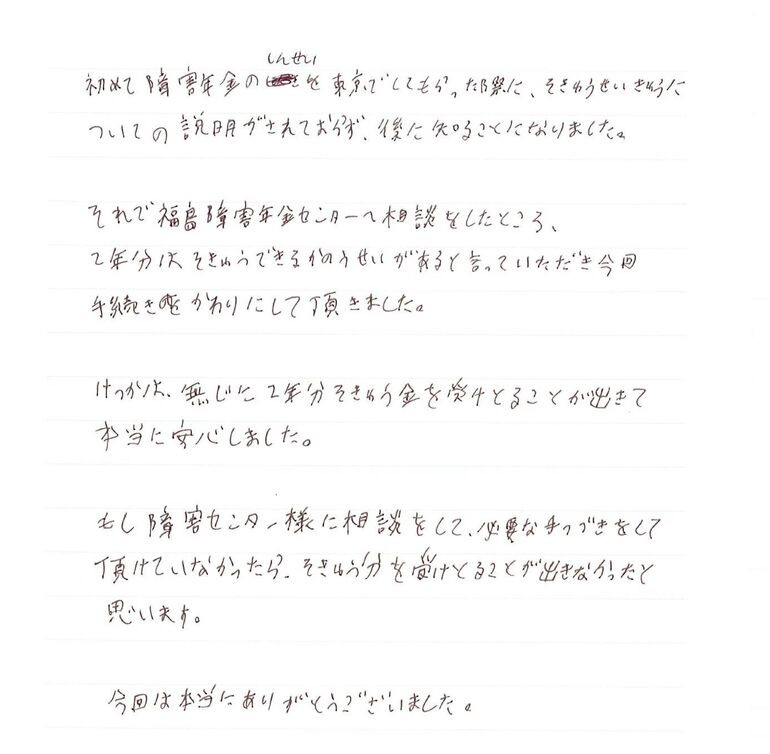 初めて障害年金のしんせいを東京でしてもらった際に、そきゅうせいきゅうに
ついての説明がされておらず、後に知ることになりました。
それで福島障害年金センターへ相談をしたところ、
2年分はそきゅうできるかのうせいがあると言っていただき今回
手続きをかわりにして頂きました。
けっかは、無じに2年分そきゅう金を受けとることが出きて
本当に安心しました。
もし障害センター様に相談をして、必要な手つづきをして
頂けていなかったら、そきゅう分を受けとることが出きなかったと
思います。
今回は本当にありがとうございました。